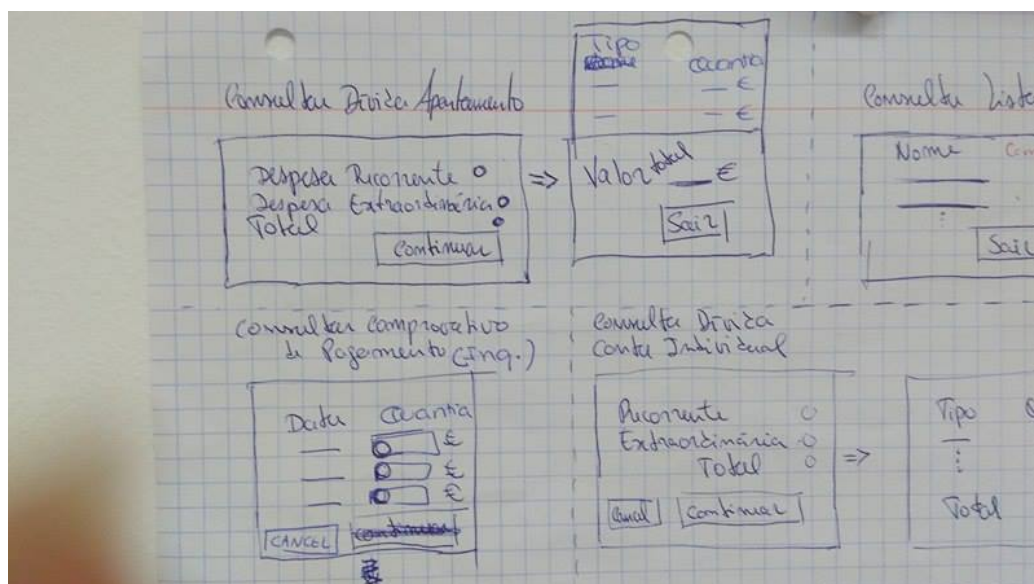 Consultar Divida Apartamento
Despesa Recorrente
Despesa Extraordinária
Total
Continuar
=>
Tipo
Quantia
€
€
Valor total €
Sair
Consultar
Nome
Sair
Consultar Comprovativo
de Pagamento (Inq.)
Data Quantia
€
€
€
CANCEL
Consulta Divida
Conta Individual
Recorrente
Extraordinária
Total
Cancel Continuar
=>
Tipo
Total